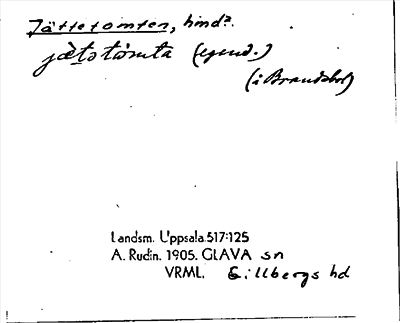 Jättetomten, hmd?.
jätstômta (egend.)
(i Brandsbol)
Landsm. Uppsala.517:125
A. Rudin. 1905. GLAVA sn
VRML. Gillbergs hd